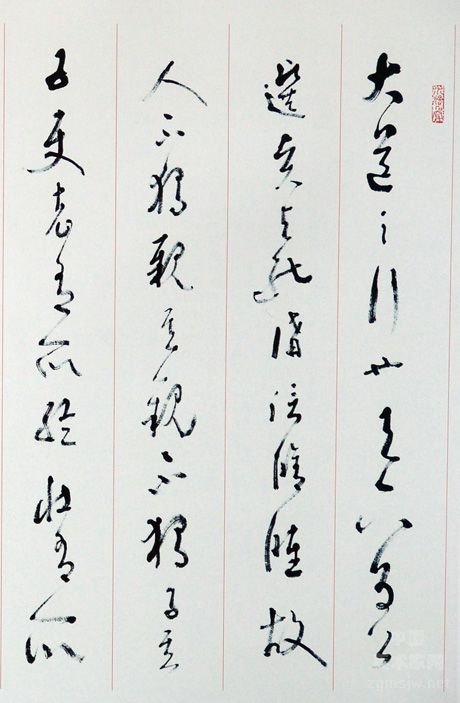 大道之行也天下為公
選賢与能講信脩睦故
人不獨親其親不獨子其
子使老有所終壮有所
中国
美术家网
zgmsjw.net